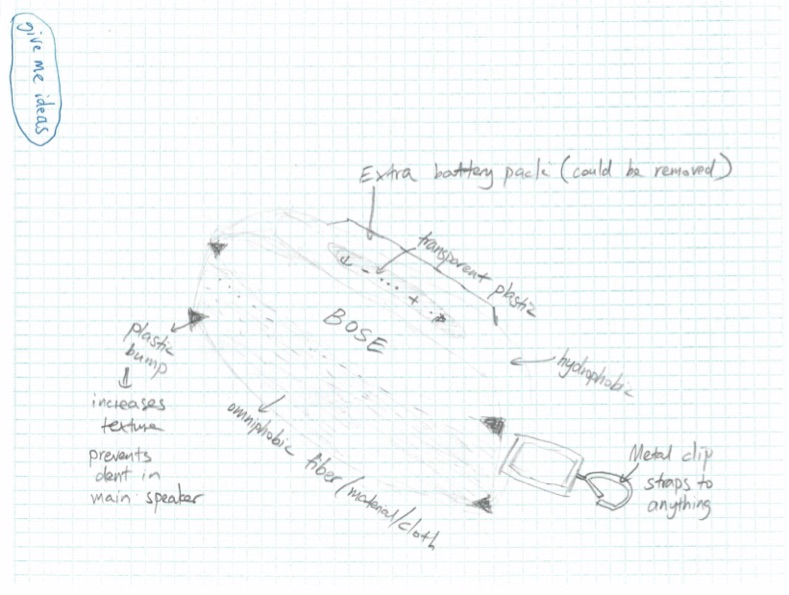 give me ideas
Extra battery pack (could be removed)
transparent plastic
- .... +
BOSE
hydrophobic
plastic
bump
increases
texture
prevents
dent in
main speaker
omniphobic fiber/material/cloth
Metal clip
straps to
anything